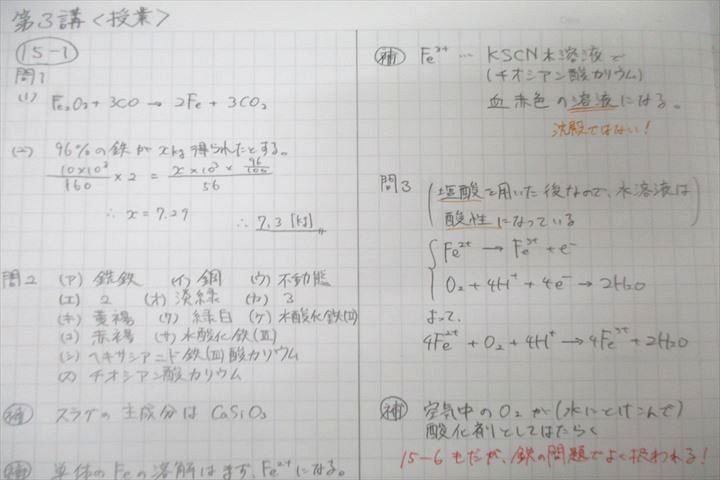 第3講<授業>
15-1
問1
(1) Fe2O3+3CO → 2Fe + 3CO2
(2) 96%の鉄が x kg 得られたとする。
10×10³/160 × 2 = x×10³×96/100/56
∴ x = 7.29 ∴ 7.3 [kg]
問2 (ア) 銑鉄 (イ) 鋼 (ウ) 不動態
(エ) 2 (オ) 淡緑 (カ) 3
(キ) 黄褐 (ク) 緑白 (ケ) 水酸化鉄(II)
(コ) 赤褐 (サ) 水酸化鉄(III)
(シ) ヘキサシアニド鉄(III)酸カリウム
(ス) チオシアン酸カリウム
補 スラグの主成分は CaSiO3
補 単体のFeの溶解はまず、Fe²⁺になる。
補 Fe³⁺ … KSCN水溶液で
(チオシアン酸カリウム)
血赤色の溶液になる。
沈殿ではない!
問3 (塩酸を用いた後なので、水溶液は
酸性になっている)
Fe²⁺ → Fe³⁺ + e⁻
O2 + 4H⁺ + 4e⁻ → 2H2O
よって、
4Fe²⁺ + O2 + 4H⁺ → 4Fe³⁺ + 2H2O
補 空気中のO2が(水にとけこんで)
酸化剤としてはたらく
15-6もだが、鉄の問題でよく扱われる!